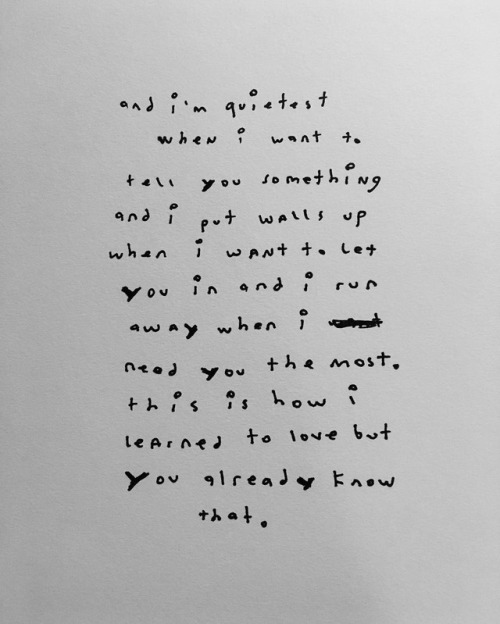 and i'm quietest
when i want to
tell you something
and i put walls up
when i want to let
you in and i run
away when i
need you the most.
this is how i
learned to love but
you already know
that.